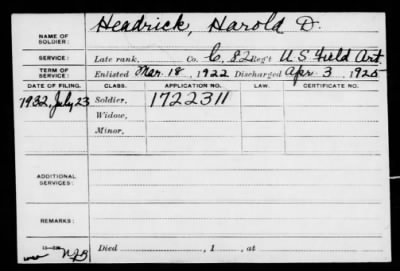 NAME OF SOLDIER: Headrick, Harold D.
SERVICE: Late rank, Co. C, 82 Reg't U.S. Field Art.
TERM OF SERVICE: Enlisted Mar. 18, 1922 Discharged Apr. 3, 1925
DATE OF FILING. CLASS. APPLICATION NO. LAW. CERTIFICATE NO.
1932, July 23 Soldier, 1722311
Widow,
Minor,
ADDITIONAL SERVICES:
REMARKS:
Died , 1 , at